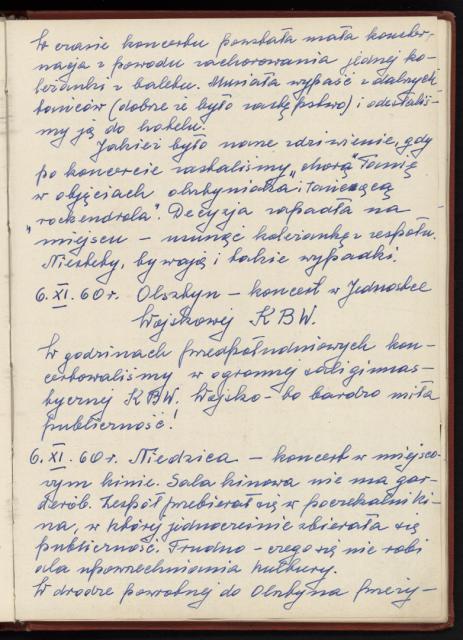 W czasie koncertu powstała mała konster-
nacja z powodu zachorowania jednej ko-
leżanki z baletu. Musiała wypaść z dalszych
tańców (dobrze że było zastępstwo) i odesłaliś-
my ją do hotelu.
Jakież było nasze zdziwienie, gdy
po koncercie zastaliśmy „chorą" Tanię
w objęciach olsztyniaka i tańczącą
„rockendrola". Decyzja zapadła na
miejscu – usunąć koleżankę z zespołu.
Niestety, bywają i takie wypadki.
6. XI. 60 r. Olsztyn – koncert w Jednostce
Wojskowej KBW.
W godzinach przedpołudniowych kon-
certowaliśmy w ogromnej sali gimnas-
tycznej KBW. Wojsko – to bardzo miła
publiczność!
6. XI. 60 r. Niedzica – koncert w miejsco-
wym kinie. Sala kinowa nie ma gar-
derób. Zespół przebierał się w poczekalni ki-
na, w której jednocześnie zbierała się
publiczność. Trudno – czego się nie robi
dla upowszechniania kultury.
W drodze powrotnej do Olsztyna przeży-